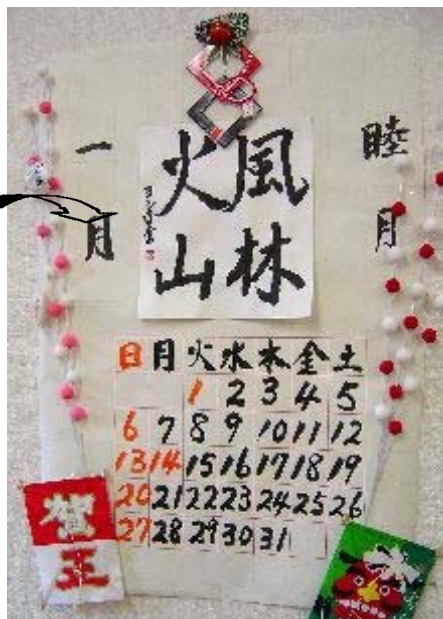 睦月
風林
火山
一月
日 月 火 水 木 金 土
1 2 3 4 5
6 7 8 9 10 11 12
13 14 15 16 17 18 19
20 21 22 23 24 25 26
27 28 29 30 31
賀